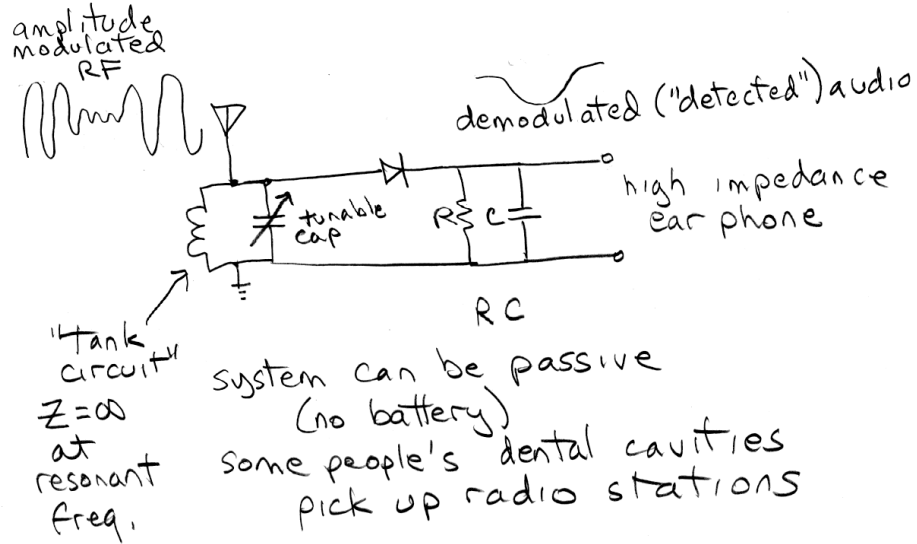 amplitude
modulated
RF
demodulated ("detected") audio
high impedance
ear phone
tunable
cap
R
C
RC
"Tank
circuit"
Z=∞
at
resonant
freq.
system can be passive
(no battery)
some people's dental cavities
pick up radio stations